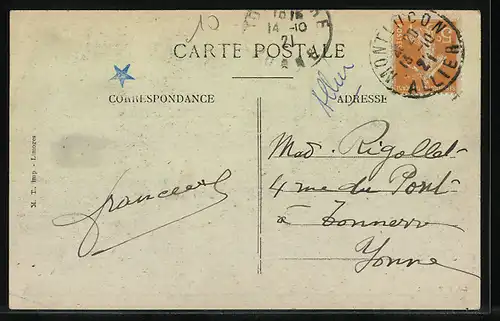 10
16 15
14 -10
21
CARTE POSTALE
MONTLUÇON
13 -10
21
ALLIER
CORRESPONDANCE
Allier
ADRESSE
Mad. Rigollet
4 rue du Pont
à Tonnerre
Yonne
M. T. Imp. - Limoges